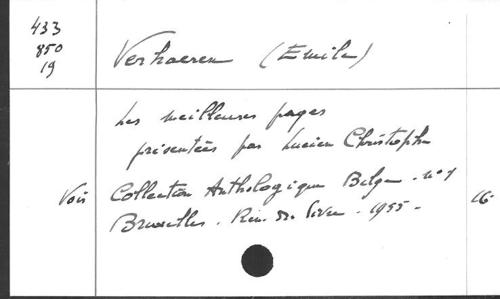 433
850
19
Verhaeren (Emile)
Les meilleures pages
présentées par Lucien Christophe
Voir Collection Anthologique Belge. n° 1
Bruxelles. Ren. du Livre. 1955. 16-